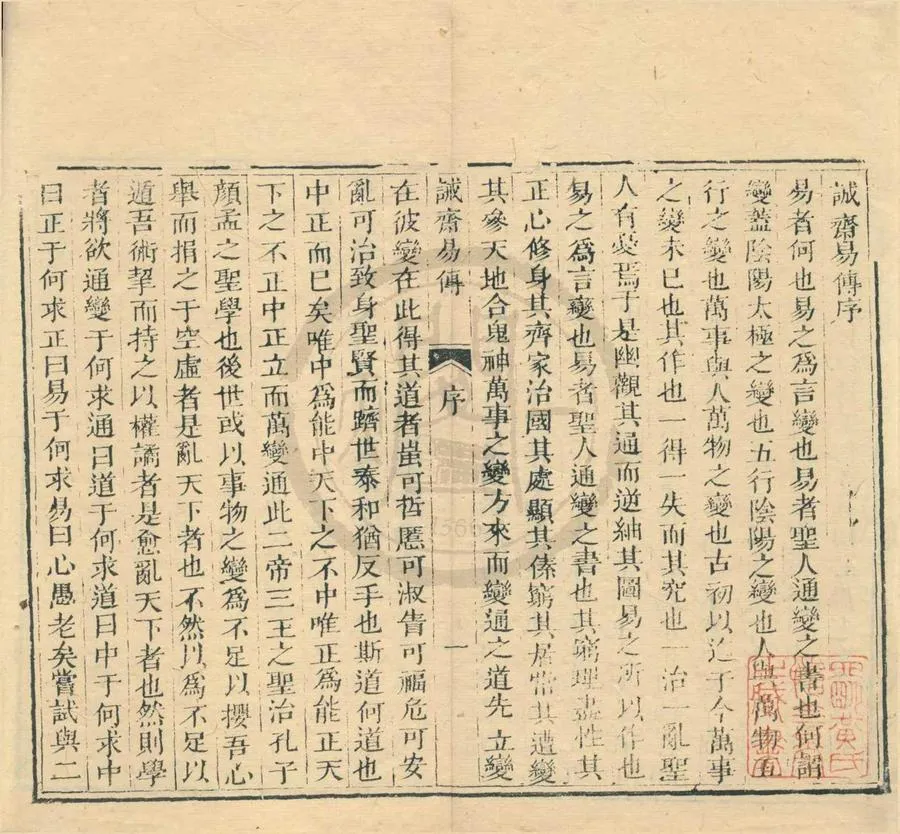 誠齋易傳序
易者何也易之爲言變也易者聖人通變之書也何謂
變蓋陰陽太極之變也五行陰陽之變也人與萬物五
行之變也萬事與人萬物之變也古初以迄于今萬事
之變未已也其作也一得一失而其究也一治一亂聖
人有憂焉于是幽觀其通而逆紬其圖易之所以作也
易之爲言變也易者聖人通變之書也其窮理盡性其
正心修身其齊家治國其處顯其傣窮其居常其遭變
其參天地合鬼神萬事之變方來而變通之道先立變
誠齋易傳 序 一
在彼變在此得其道者蚩可哲慝可淑眚可福危可安
亂可治致身聖賢而躋世泰和猶反手也斯道何道也
中正而巳矣唯中爲能中天下之不中唯正爲能正天
下之不正中正立而萬變通此二帝三王之聖治孔子
顔孟之聖學也後世或以事物之變爲不足以攖吾心
舉而捐之于空虛者是亂天下者也不然以爲不足以
遁吾術挈而持之以權譎者是愈亂天下者也然則學
者將欲通變于何求通曰道于何求道曰中于何求中
曰正于何求正曰易于何求易曰心愚老矣嘗試與二